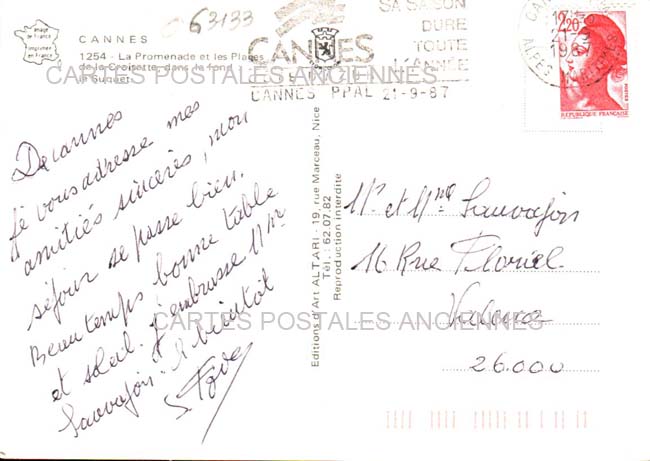 063133
Image de France
Imprimé en France
CANNES
1254 - La Promenade et les Plages
de la Croisette dans le fond
le Suquet
CANNES
SA SAISON
DURE
TOUTE
L'ANNÉE
CANNES PPAL 21-9-87
21-9
1987
ALPES MARITIMES
2,20
REPUBLIQUE FRANÇAISE
CARTES POSTALES ANCIENNES
De Cannes
je vous adresse mes
amitiés sincères, mon
séjour se passe bien.
Beau temps bonne table
et soleil. J'embrasse Mme
Sauvajon. A bientôt
Editions d'Art ALTARI - 19, rue Marceau, Nice
Tél.: 62.07.82
Reproduction interdite
Mr et Mme Sauvajon
16 Rue Floriel
Valence
26.000
CARTES POSTALES ANCIENNES